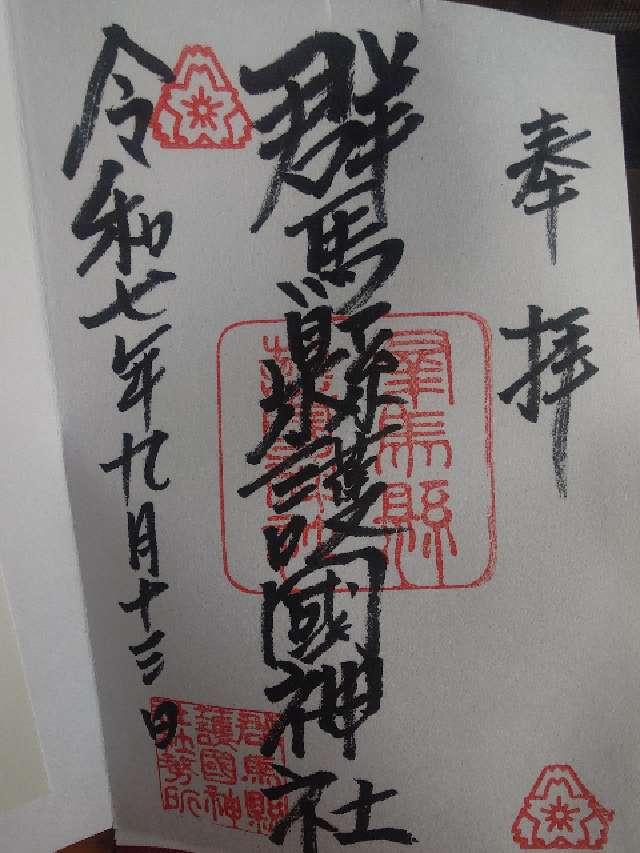 奉拝
群馬縣護國神社
令和七年九月十三日
群馬縣
護國神社
群馬縣
護國神
社務所